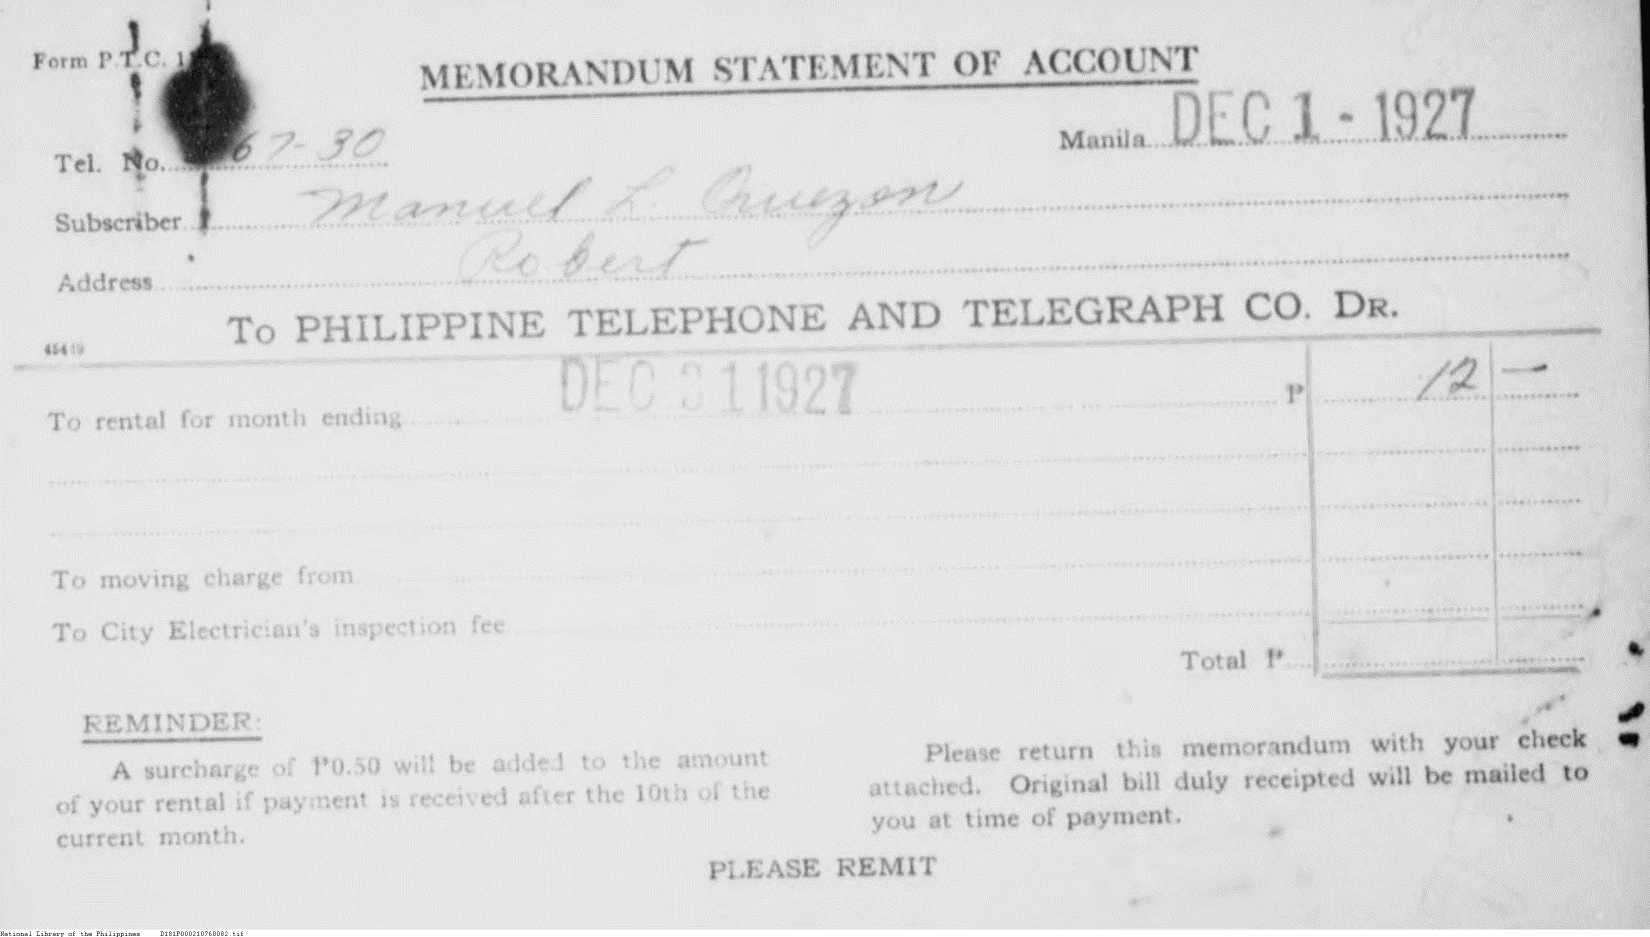 Form P.T.C. 1
MEMORANDUM STATEMENT OF ACCOUNT
Manila DEC 1 - 1927
Tel. No. 67-30
Subscriber Manuel L. Quezon
Address Robert
To PHILIPPINE TELEPHONE AND TELEGRAPH CO. DR.
45419
To rental for month ending DEC 31 1927 ₱ 12 —
To moving charge from
To City Electrician's inspection fee
Total ₱
REMINDER:
A surcharge of ₱0.50 will be added to the amount
of your rental if payment is received after the 10th of the
current month.
Please return this memorandum with your check
attached. Original bill duly receipted will be mailed to
you at time of payment.
PLEASE REMIT
National Library of the Philippines D181P000210768082.tif